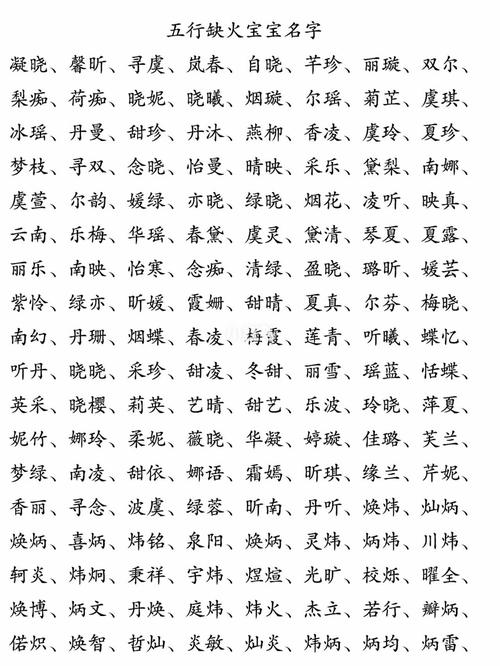 五行缺火宝宝名字
凝晓、馨昕、寻虞、岚春、自晓、芊珍、丽璇、双尔、
梨痴、荷痴、晓妮、晓曦、烟璇、尔瑶、菊芷、虞琪、
冰瑶、丹曼、甜珍、丹沐、燕柳、香凌、虞玲、夏珍、
梦枝、寻双、念晓、怡曼、晴映、采乐、黛梨、南娜、
虞萱、尔韵、媛绿、亦晓、绿晓、烟花、凌听、映真、
云南、乐梅、华瑶、春黛、虞灵、黛清、琴夏、夏露、
丽乐、南映、怡寒、念痴、清绿、盈晓、璐昕、媛芸、
紫怜、绿亦、昕媛、霞姗、甜晴、夏真、尔芬、梅晓、
南幻、丹珊、烟蝶、春凌、海霞、莲青、听曦、蝶忆、
听丹、晓晓、采珍、甜凌、冬甜、丽雪、瑶蓝、恬蝶、
英采、晓樱、莉英、艺晴、甜艺、乐波、玲晓、萍夏、
妮竹、娜玲、柔妮、薇晓、华凝、婷璇、佳璐、芙兰、
梦绿、南凌、甜依、娜语、霜嫣、昕琪、缘兰、芹妮、
香丽、寻念、波虞、绿蓉、昕南、丹听、焕炜、灿炳、
焕炳、喜炳、炜铭、泉阳、焕炳、灵炜、炳炜、川炜、
轲炎、炜炯、秉祥、宇炜、煜煊、光旷、校烁、曜全、
焕博、炳文、丹焕、庭炜、炜火、杰立、若行、瓣炳、
偌炽、焕智、哲灿、炎敏、灿炎、炜炳、炳均、炳雷、